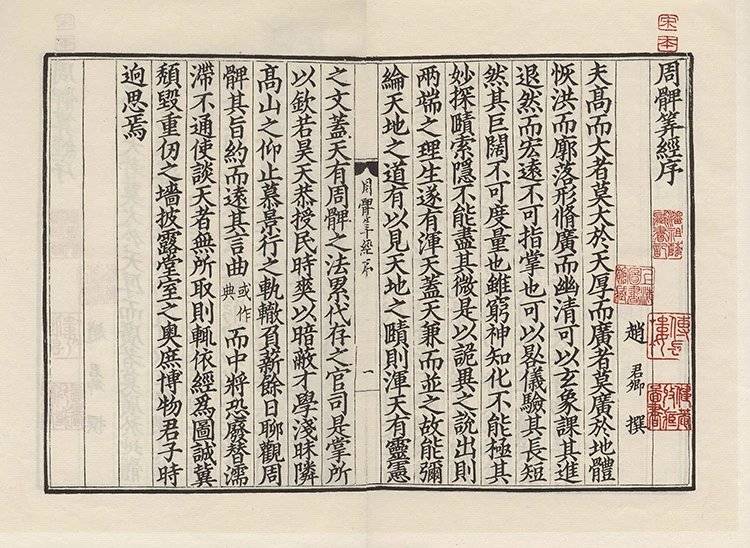 宋本
周髀筭經序
趙君卿撰
夫髙而大者莫大於天厚而廣者莫廣於地體
恢洪而廓落形脩廣而幽清可以玄象課其進
退然而宏遠不可指掌也可以晷儀驗其長短
然其巨闊不可度量也雖窮神知化不能極其
妙探賾索隱不能盡其微是以詭異之說出則
兩端之理生遂有渾天蓋天兼而並之故能彌
綸天地之道有以見天地之賾則渾天有靈憲
周髀筭經序 一
之文蓋天有周髀之法累代存之官司是掌所
以欽若昊天恭授民時爽以暗蔽才學淺昧隣
髙山之仰止慕景行之軌轍負薪餘日聊觀周
髀其旨約而遠其言曲或作典而中將恐廢替濡
滯不通使談天者無所取則輒依經爲圖誠冀
頹毀重仞之墻披露堂室之奥庶博物君子時
逈思焉